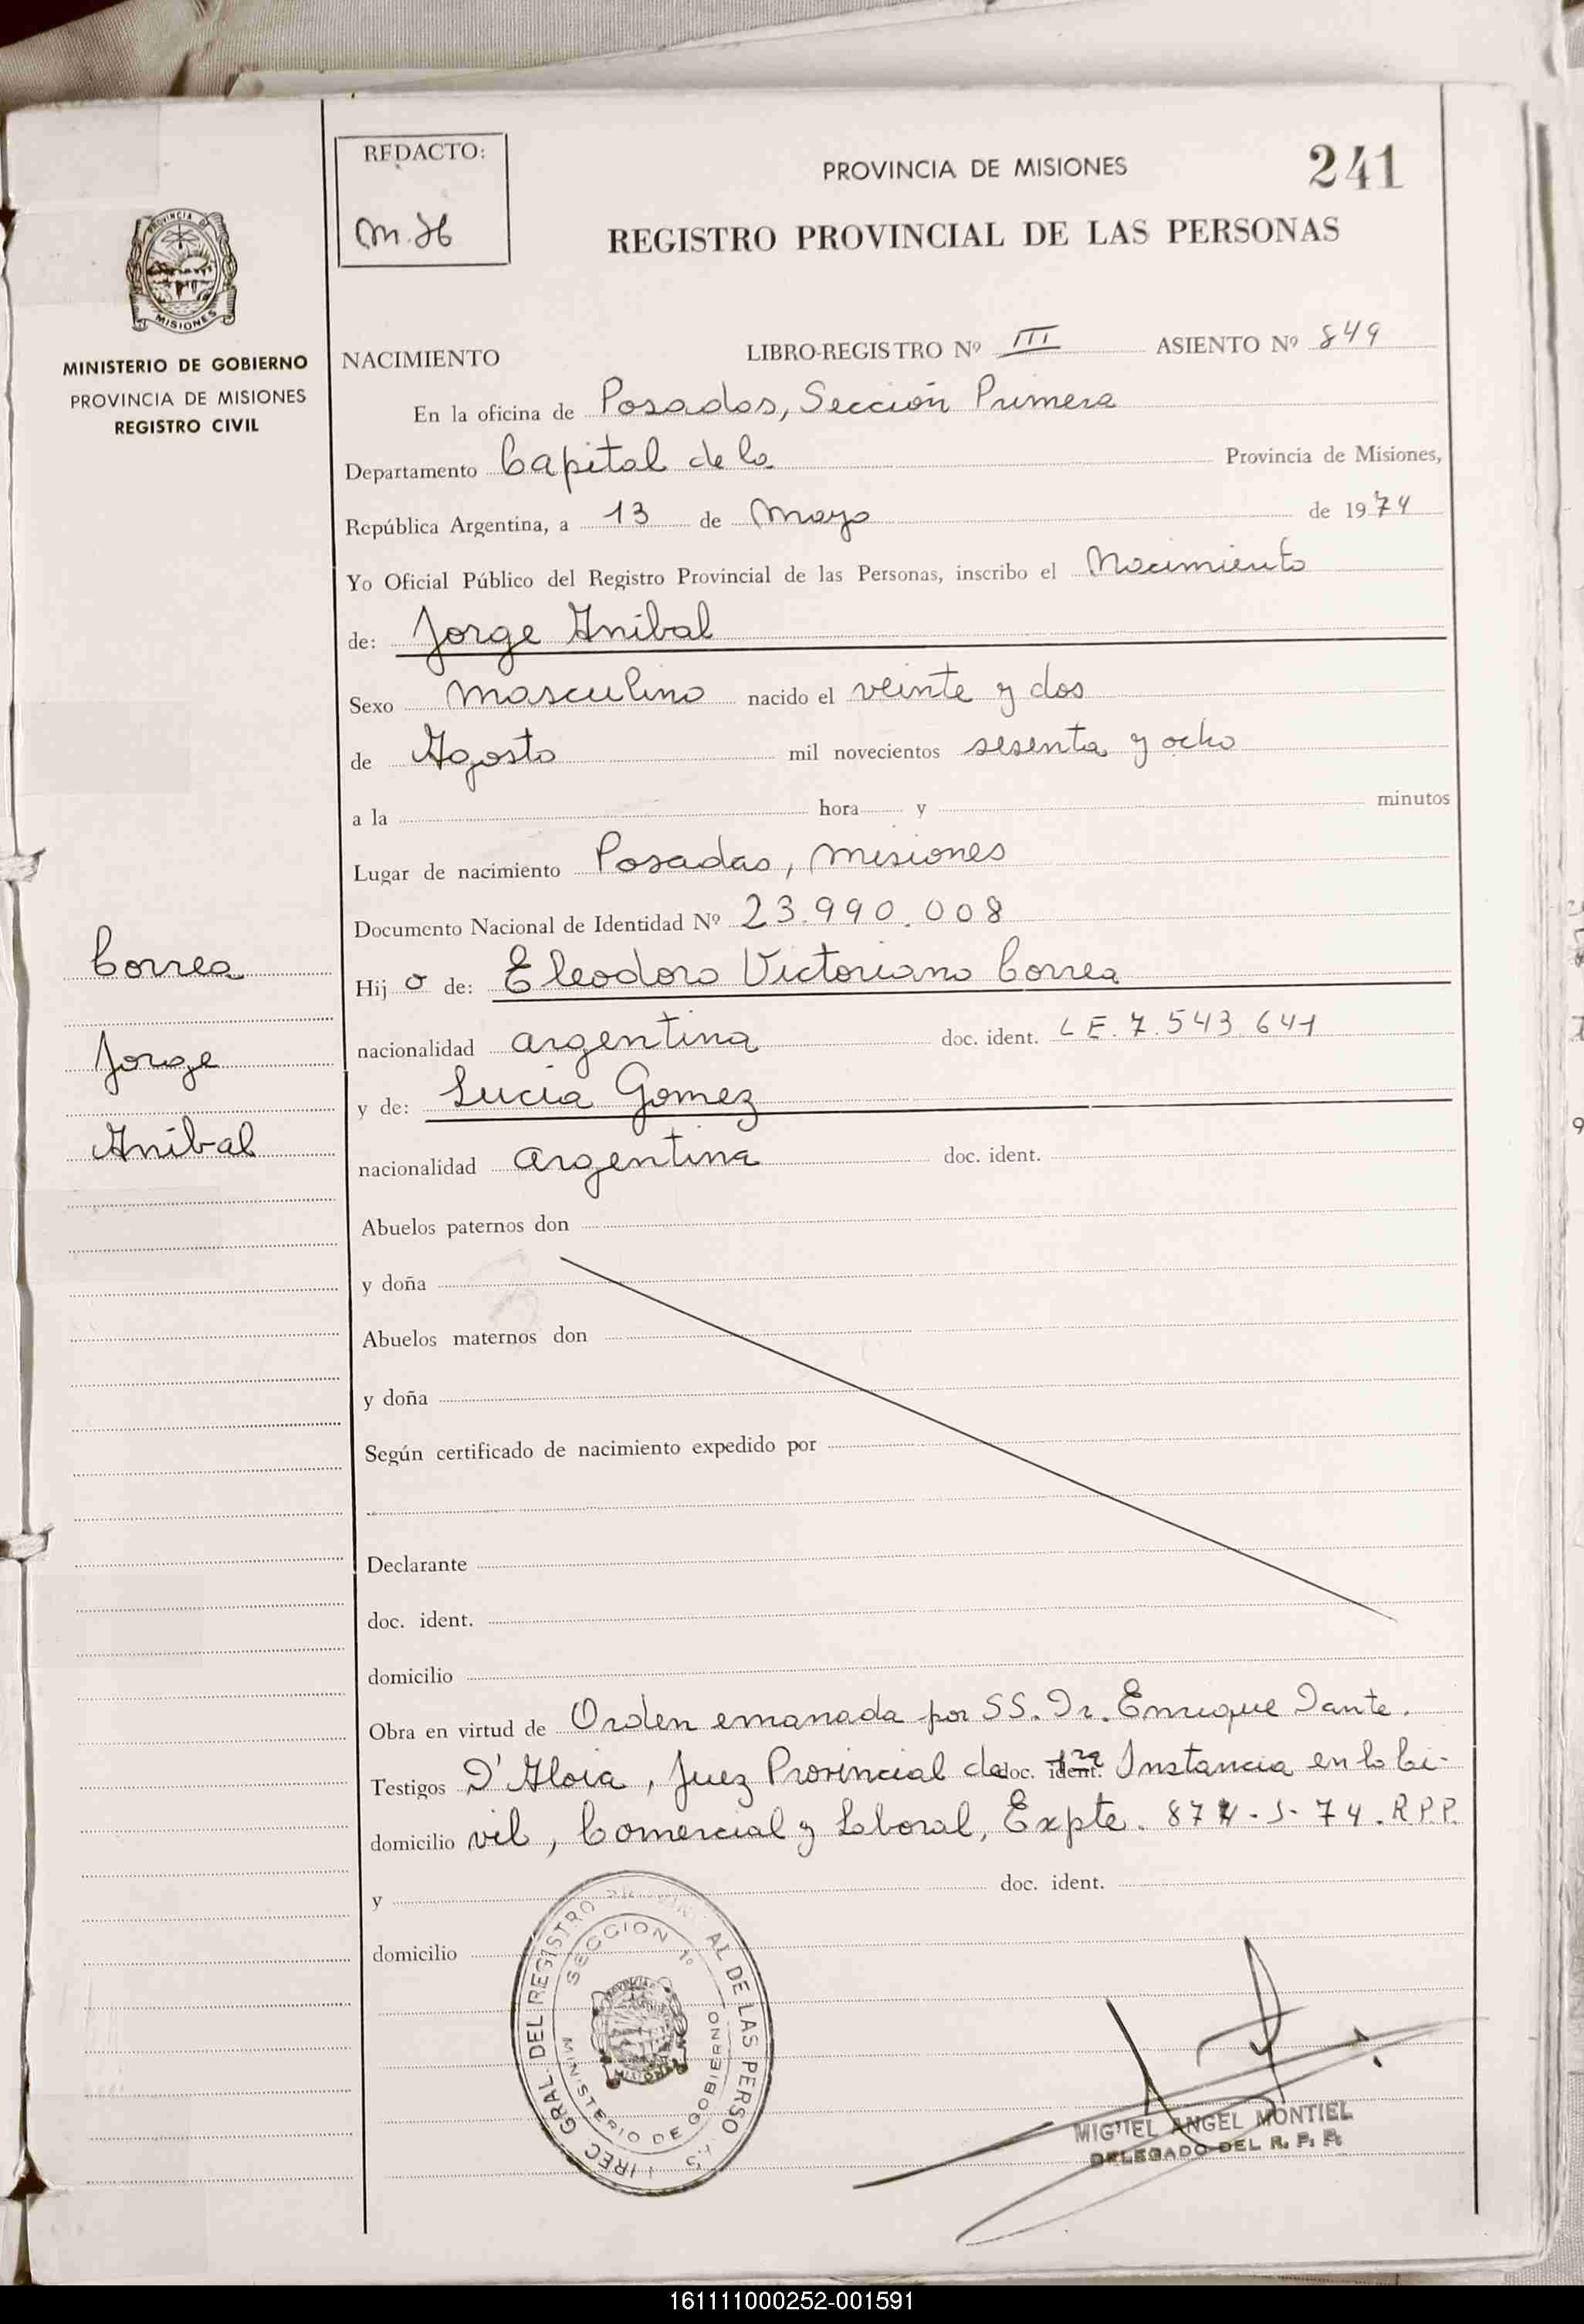 REDACTO:
PROVINCIA DE MISIONES
241
REGISTRO PROVINCIAL DE LAS PERSONAS
PROVINCIA DE
MISIONES
MINISTERIO DE GOBIERNO
PROVINCIA DE MISIONES
REGISTRO CIVIL
NACIMIENTO LIBRO-REGISTRO Nº III ASIENTO Nº 849
En la oficina de Posadas, Sección Primera
Departamento Capital de la Provincia de Misiones,
República Argentina, a 13 de Mayo de 1974
Yo Oficial Público del Registro Provincial de las Personas, inscribo el Nacimiento
de: Jorge Anibal
Sexo masculino nacido el veinte y dos
de Agosto mil novecientos sesenta y ocho
a la hora y minutos
Lugar de nacimiento Posadas, Misiones
Documento Nacional de Identidad Nº 23.990.008
Correa
Jorge
Anibal
Hijo de: Eleodoro Victoriano Correa
nacionalidad argentina doc. ident. LE. 7.543.641
y de: Lucia Gomez
nacionalidad argentina doc. ident.
Abuelos paternos don
y doña
Abuelos maternos don
y doña
Según certificado de nacimiento expedido por
Declarante
doc. ident.
domicilio
Obra en virtud de Orden emanada por SS. Dr. Enrique Dante.
Testigos D'Aloia, Juez Provincial de doc. ident. 1ra Instancia en lo Ci-
domicilio vil, Comercial y Laboral, Expte. 74. R.P.P.
y doc. ident.
domicilio
DIREC GRAL. DEL REGISTRO AL DE LAS PERSO
SECCION 1º
MINISTERIO DE GOBIERNO
MISIONES
MIGUEL ANGEL MONTIEL
DELEGADO DEL R. P. P.
161111000252-001591